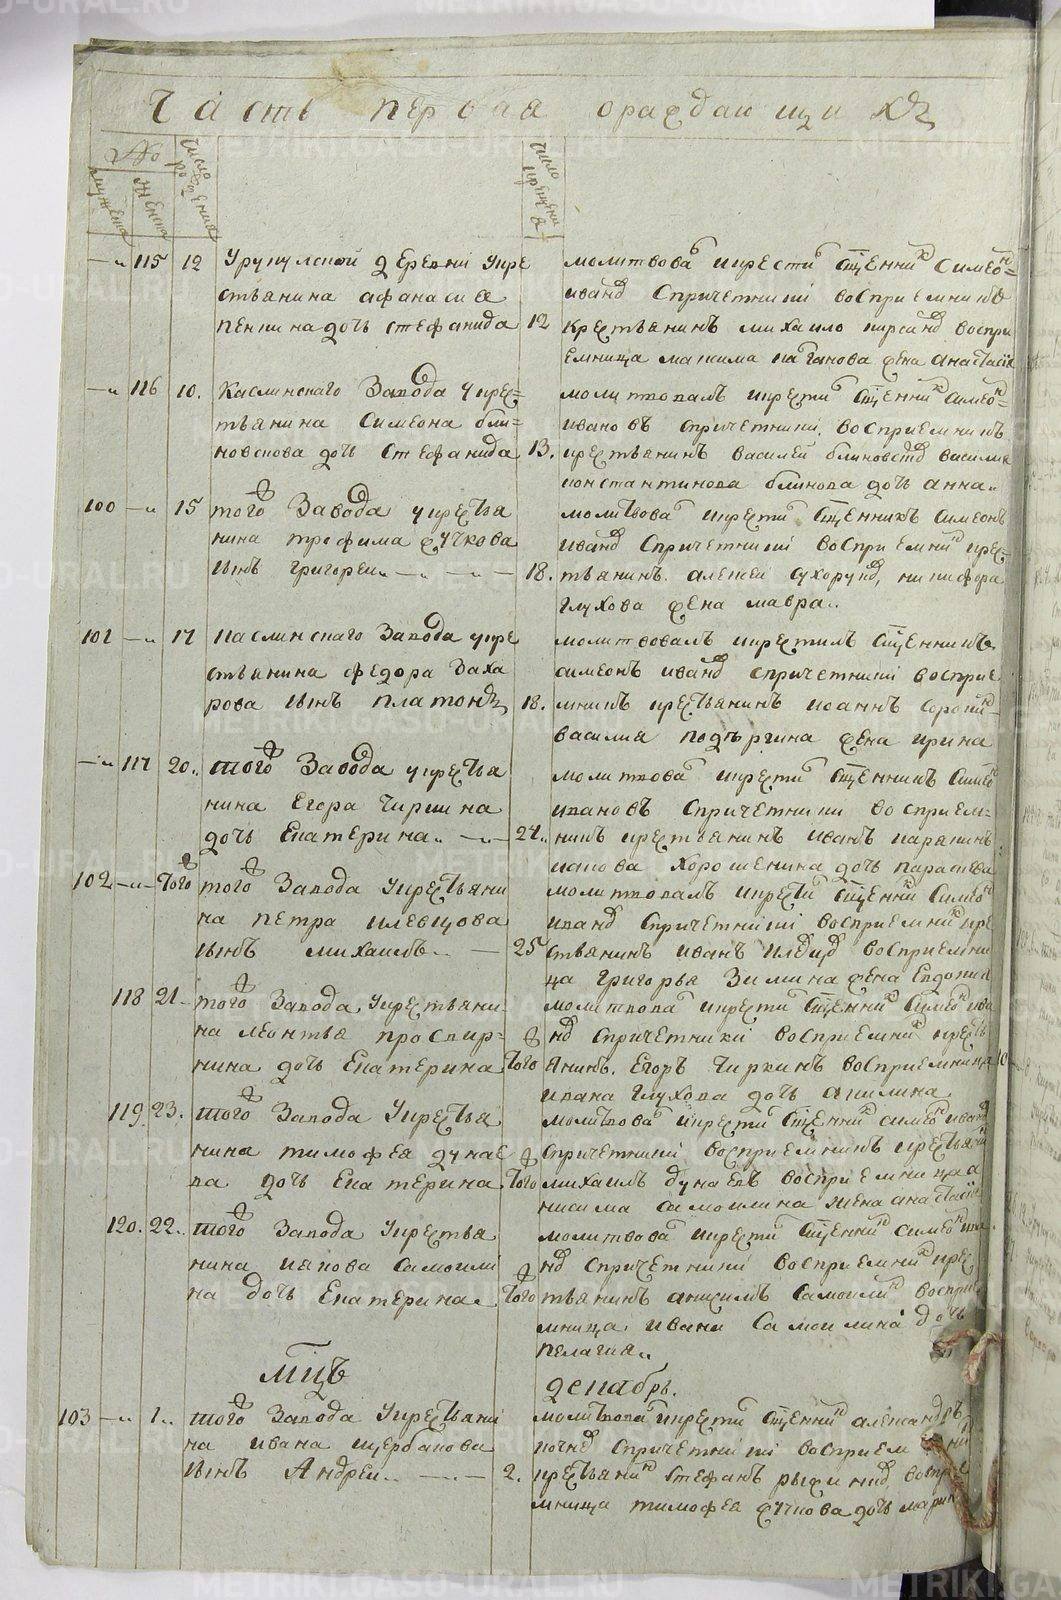 METRIKI.GASO-URAL.RU
Часть первая ораждающихъ
№
мужеска
женска
число рождения
число крещения
—„ 115 12 Урукулской деревни укре
стьянина афанасия
пенкина дочь стефанида
12
молитвова и крести сщенник симеон
иванов спричетники восприемникъ
крестьянинъ михаило кирсанов воспри
емница максима каганова жена анастасия
—„ 116 10. Каслинскаго Завода укрес=
тьянина Симеона бли=
новскова дочь Стефанида
13.
молитвовалъ и крести сщенник симеон=
ивановъ спричетники. восприемникъ
крестьянинъ василей блиновсков василия
константинова блинова дочь анна„
100 —„ 15 того Завода укрестья
нина трофима жучкова
сынъ григореи„ — „ — „ —
18.
молитвова и крести сщенникъ симеонъ
иванов спричетники восприемник крес=
тьянинъ. алексеи сухоруков, никифора
глухова жена мавра„
101 —„ 17 каслинскаго Завода укре
стьянина федора Заха
рова сынъ платонъ
18.
молитвовалъ и крестилъ сщенникъ
симеонъ иванов спричетники восприе
мникъ крестьянинъ иоаннъ сорокин
василия подкоргина жена ирина
—„ 117 20„ того Завода укрестья
нина Егора Чиркина
дочь Екатерина„ — „ —
24„
молитвова и крести сщенникъ симеон
ивановъ спричетники восприем=
никъ крестьянинъ иванъ карякинъ
иакова Хорошенина дочь параскева
102 —„— Того того Завода укрестьяни
на петра клевцова
сынъ михаилъ„ —
25
молитвовалъ и крести сщенник симеон
иванов спричетники восприемник кре
стьянинъ иванъ клевцов восприемни
ца григорья Зимина жена Евдокия
118 21 того Завода укрестьяни
на леонтья проскур=
нина дочь Екатерина
Того
молитвова и крести сщенник симеон ива
нов спричетники восприемник кресть
янинъ. Егоръ Чиркинъ восприемница
ивана Глухова дочь акилина
119. 23. того Завода укрестья
нина тимофея дунае
ва дочь Екатерина
Того
молитвова и крести сщенник симеон иванов
спричетники восприемникъ крестьянин
михаилъ дунаевъ восприемница а
нисима самоилина жена анастасия
120. 22„ того Завода укрестья
нина иакова самоили
на дочь Екатерина„
Того
молитвова и крести сщенник симеон ива
нов спричетники восприемник крес
тьянинъ анисимъ самоилин воспри
мница. ивана Самоилина дочь
пелагия„
мцъ
декабрь.
103 —„ 1„ того Завода укрестьяни
на ивана щербакова
сынъ Андреи„ —„—
2.
молитвова и крести сщенник александръ
спричетники восприем ни
крестьянин стефанъ рыжиков воспри
мница тимофея жучкова дочь марин
METRIKI.GASO-URAL.RU